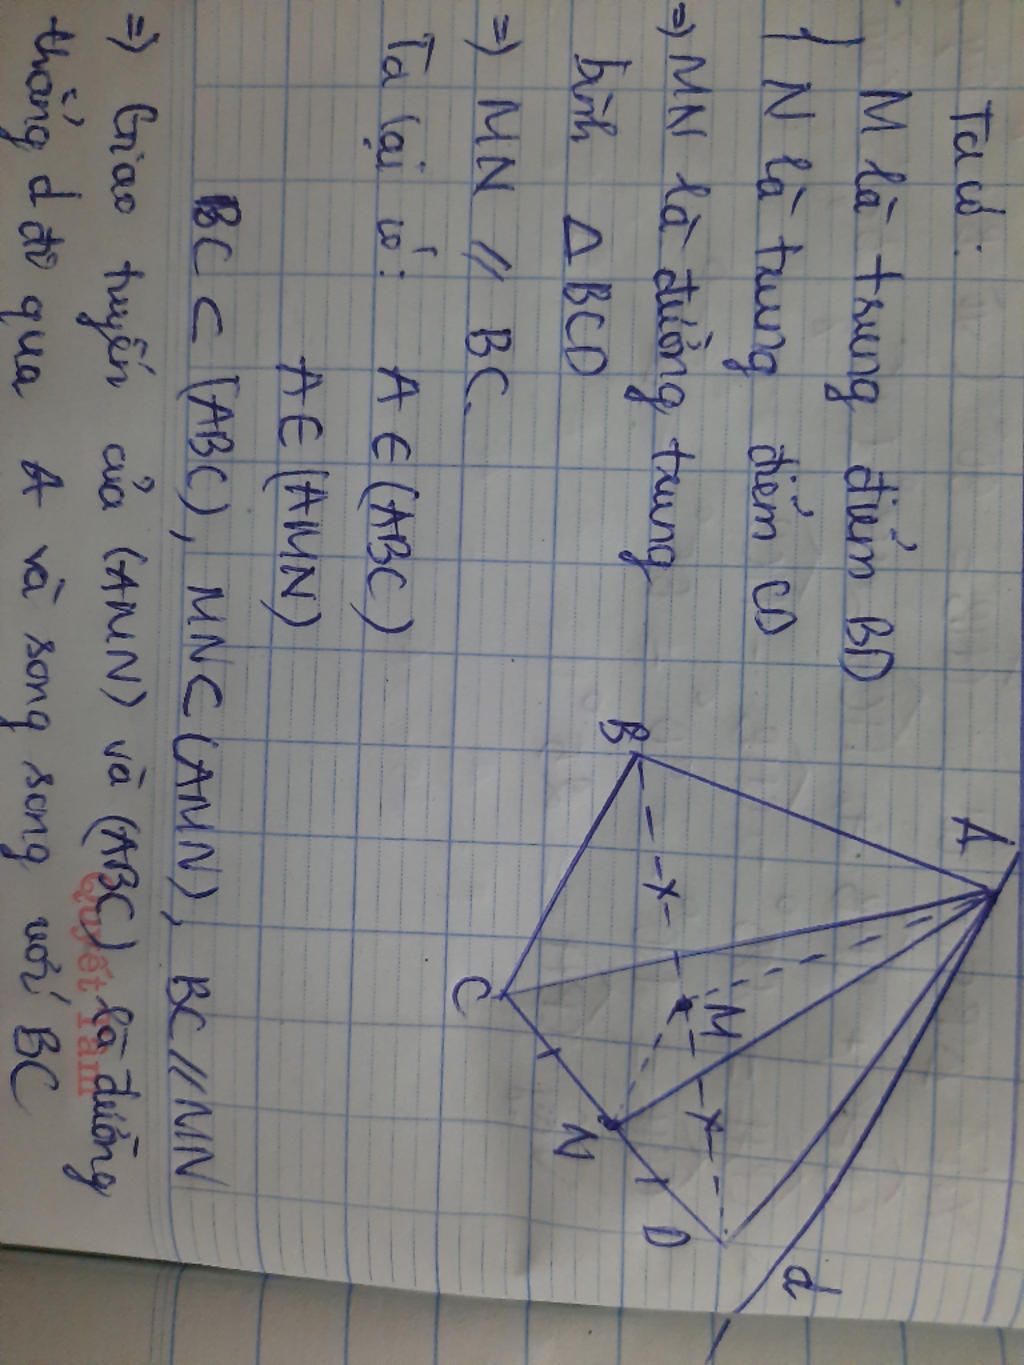 Ta có:
M là trung điểm BD
N là trung điểm CD
=> MN là đường trung
bình Δ BCD
=> MN // BC.
Ta lại có: A ∈ (ABC)
A ∈ (AMN)
BC ⊂ (ABC), MN ⊂ (AMN), BC // MN
=> Giao tuyến của (AMN) và (ABC) là đường
thẳng d đi qua A và song song với BC
A
B
M
C
N
D
d
Quyết Tâm